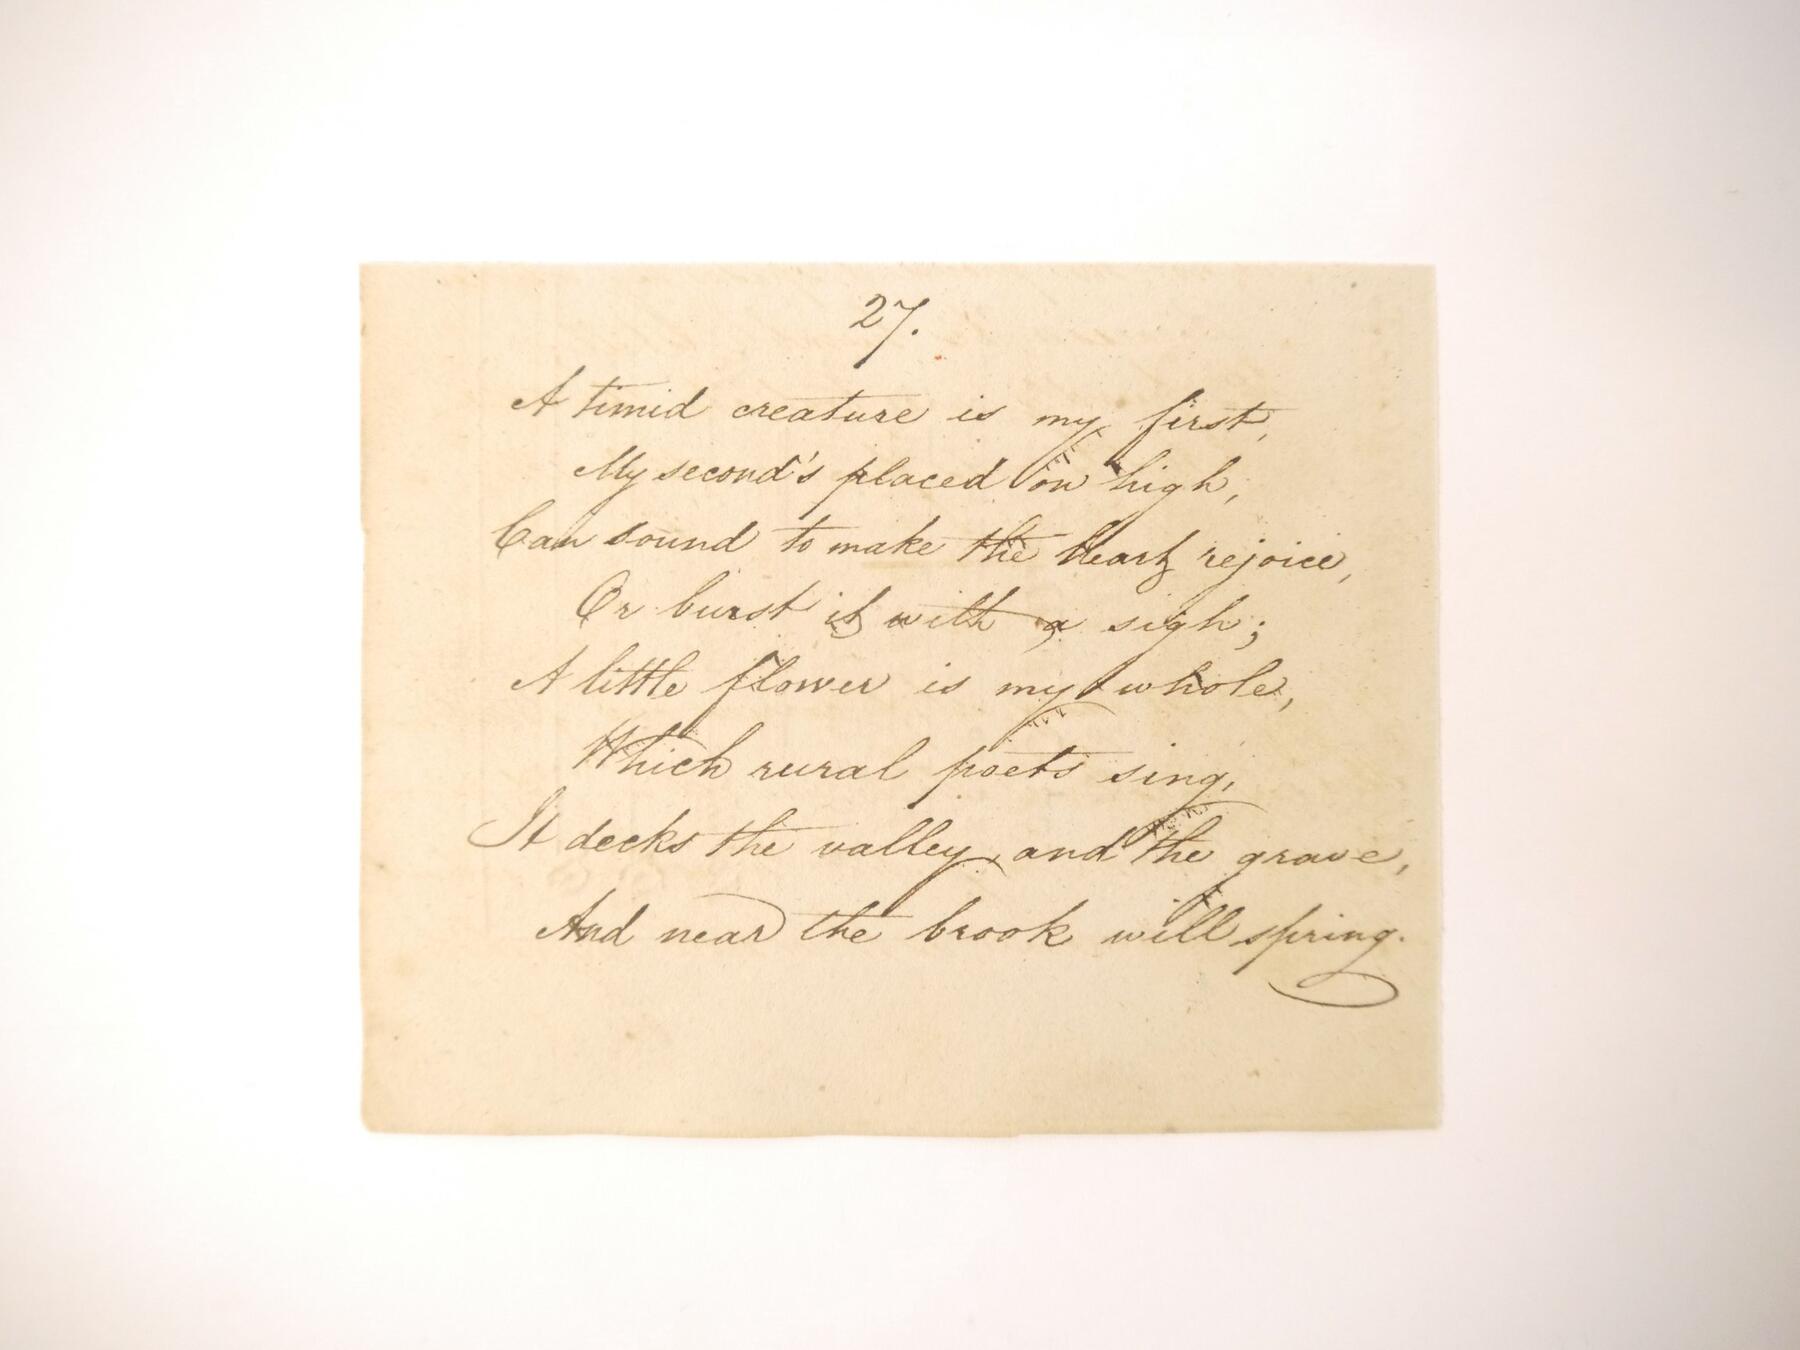 27.
A timid creature is my first,
My second's placed on high,
Can sound to make the heart rejoice,
Or burst it with a sigh;
A little flower is my whole,
Which rural poets sing,
It decks the valley, and the grave,
And near the brook will spring.